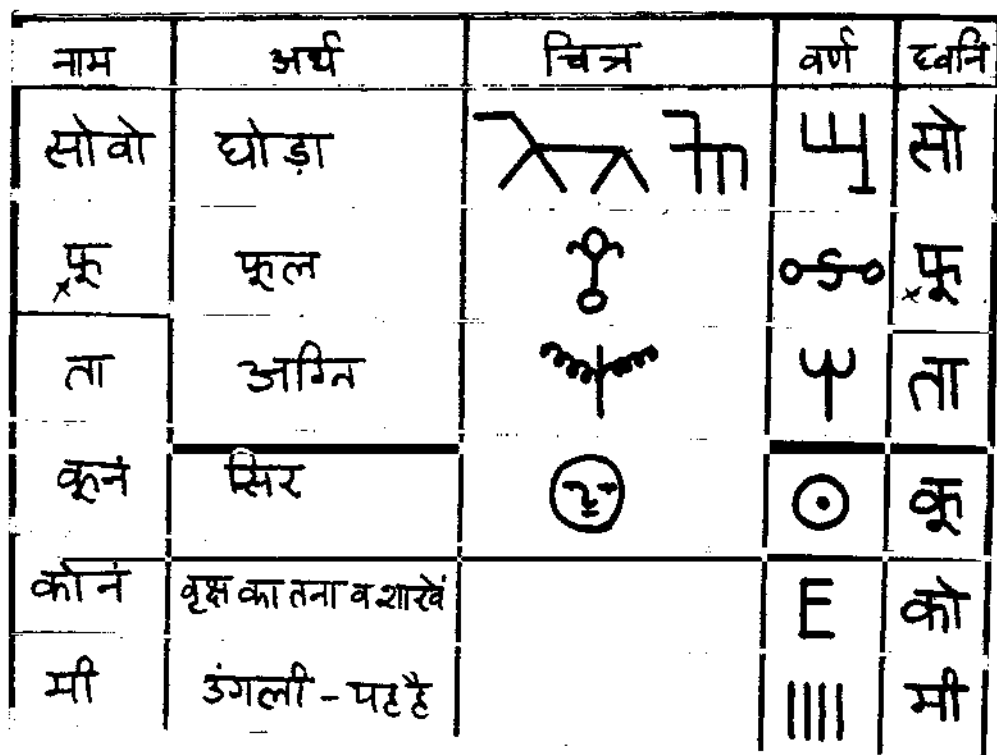 नाम अर्थ चित्र वर्ण ध्वनि
सोवो घोड़ा सो
फू फूल फू
ता अग्नि ता
कूनं सिर कू
कोनं वृक्ष का तना व शाखें E को
मी उंगली - मी